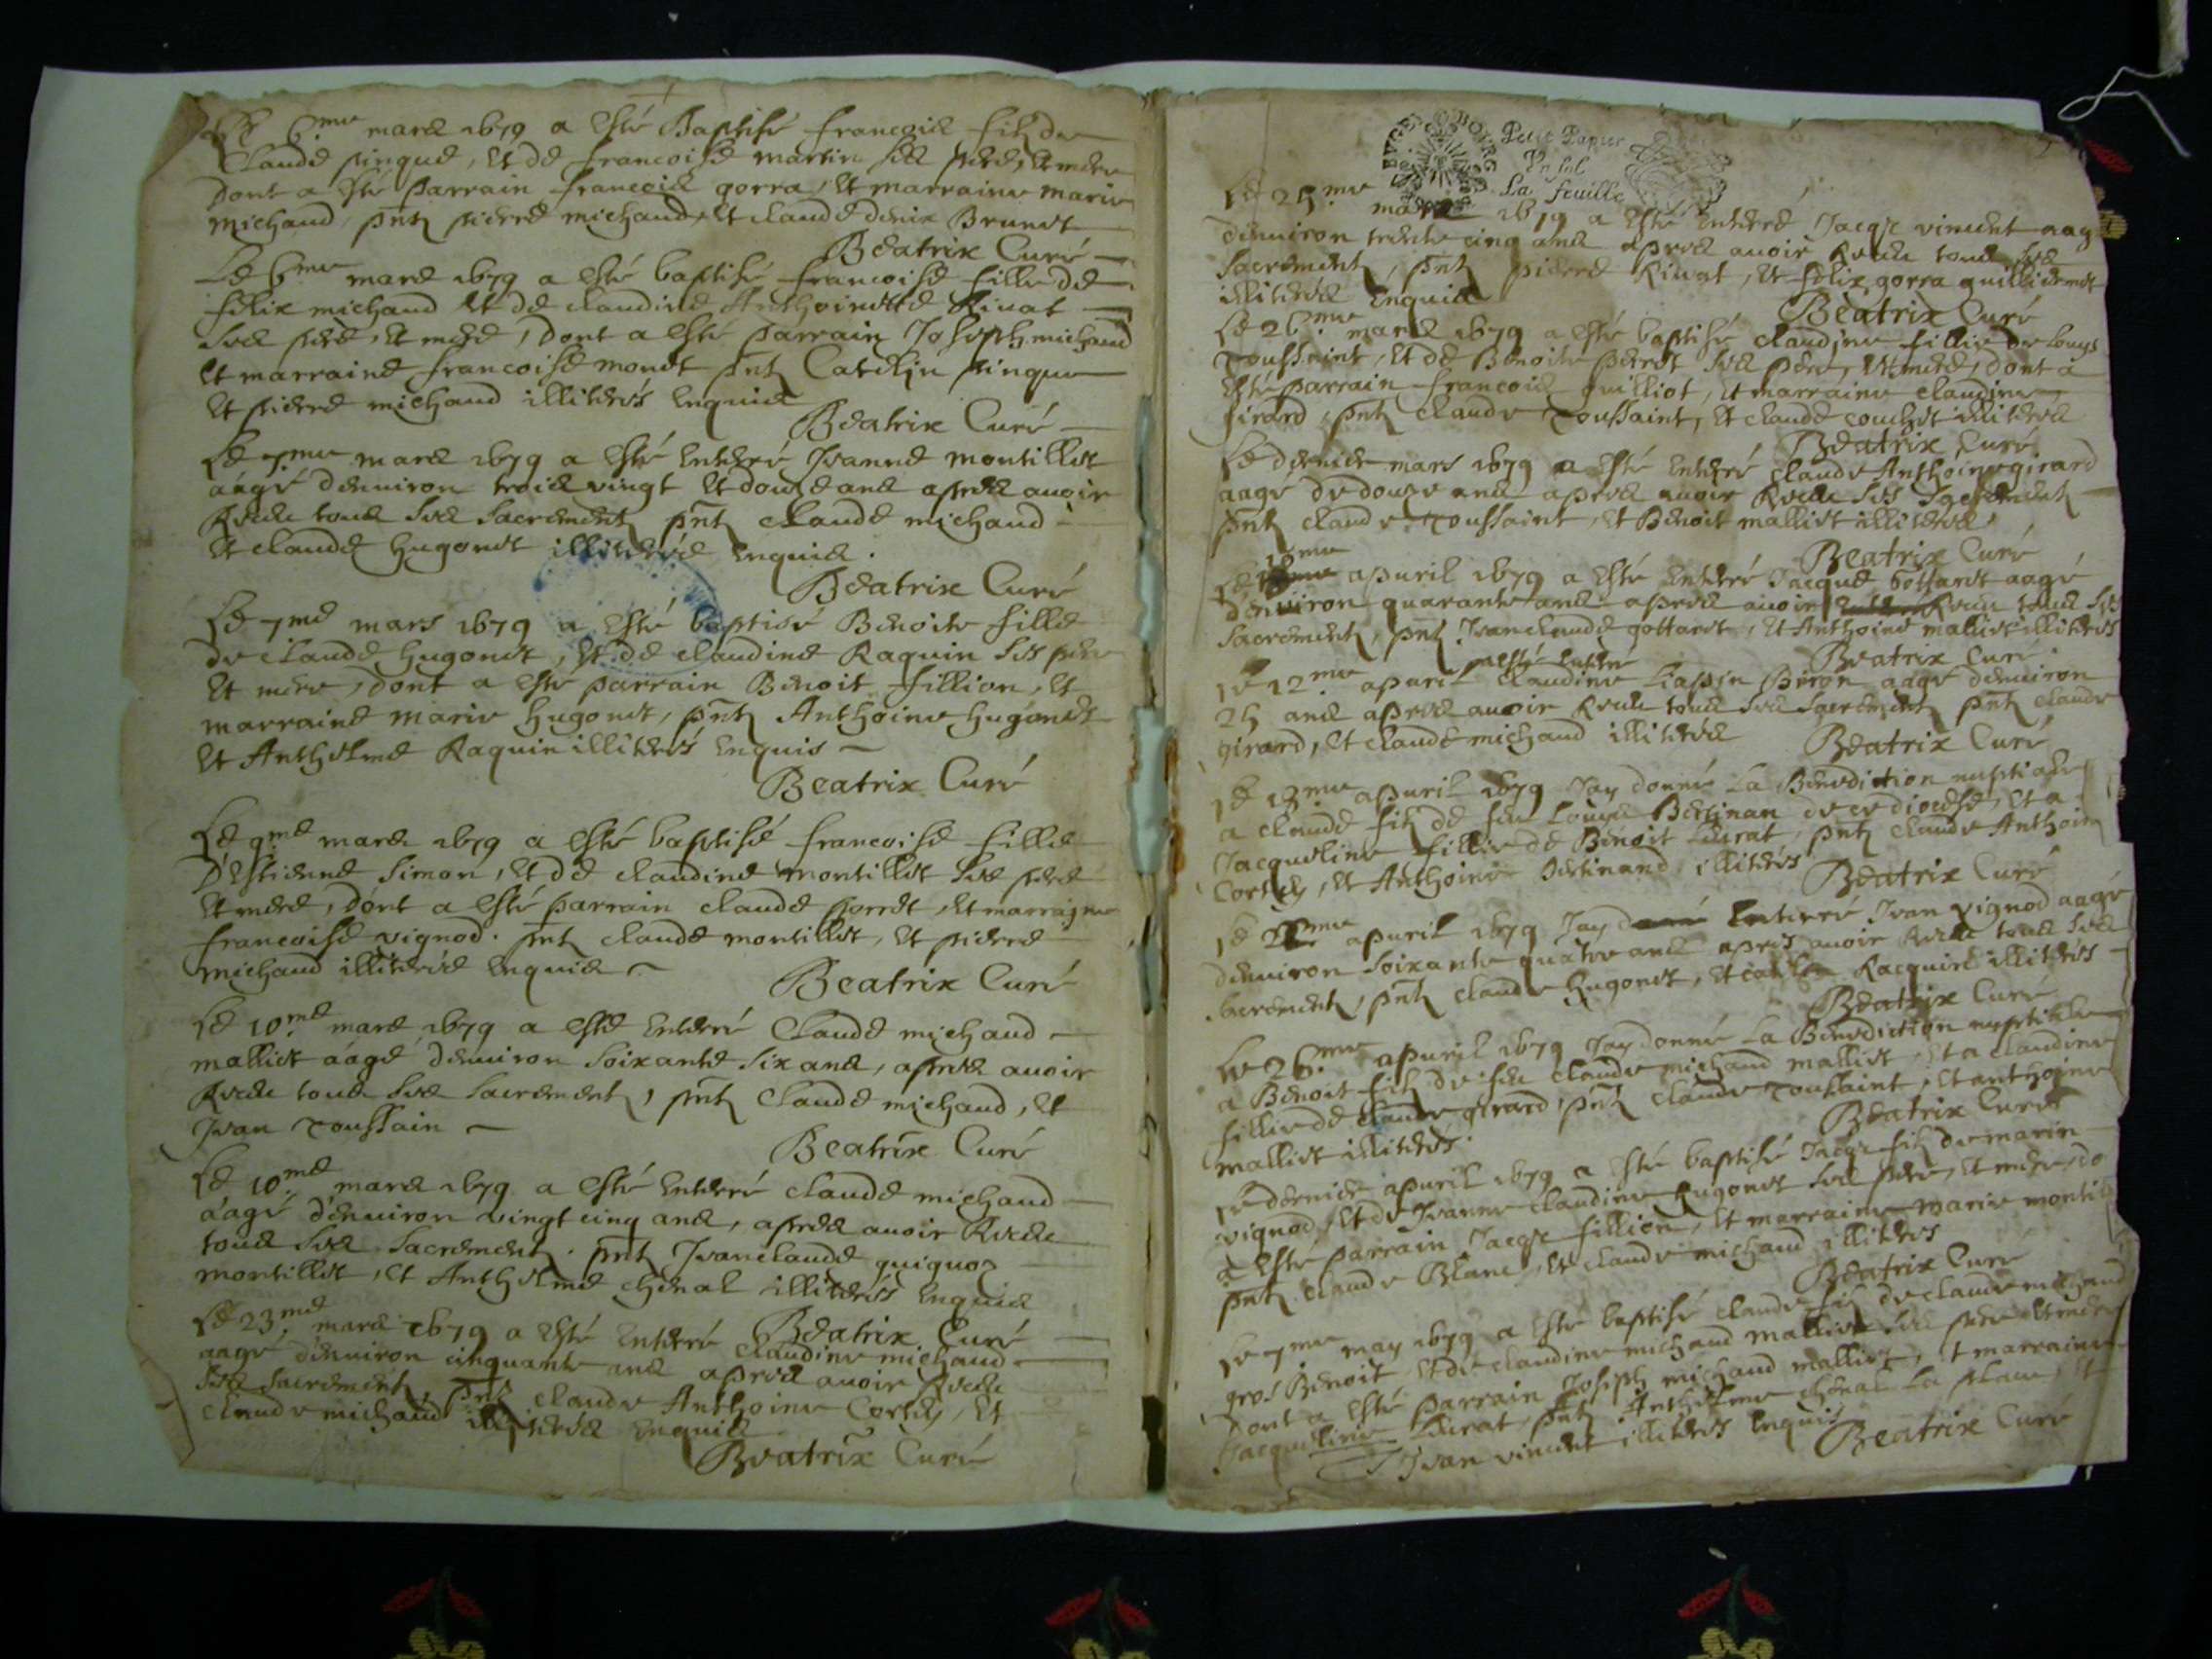 Le 6.me mars 1679 a Esté Baptisé francois filz de
Claude pingue, Et de francoise martin ses pere, Et mere
dont a Esté parrain francois gorra, Et marraine marie
michaud, pntz pierre michaud, Et claude denix Brunet
Beatrix Curé
Le 6.me mars 1679 a esté baptisé francoise fille de
felix michaud Et de claudine Anthoinette Riuat
ses pere, Et mere, dont a esté parrain Joseph michaud
Et marraine francoise monet pntz Catelin pingue
Et pierre michaud illiterés Enquis
Beatrix Curé
Le 7.me mars 1679 a Esté Enterré Jeanne montillet
aagé denuiron trois vingt Et douze ans apres auoir
Receu tous ses sacrements pntz claude michaud
Et claude hugonet illiterés Enquis.
Beatrix Curé
Le 7.me mars 1679 a Esté baptisé Benoite fille
de claude hugonet, Et de claudine Raquin ses pere
Et mere, dont a Esté parrain Benoit fillion, Et
marraine marie hugonet, pntz Anthoine hugonet
Et Anthelme Raquin illiterés Enquis
Beatrix Curé
Le 9.me mars 1679 a esté baptisé francoise fille
D'Estienne simon, Et de claudine montillet ses pere
Et mere, dont a esté parrain claude perret, Et marraine
francoise vignod. pntz claude montillet, Et pierre
michaud illiterés Enquis
Beatrix Curé
Le 10.me mars 1679 a esté Enterré Claude michaud
malliet aagé denuiron soixante six ans, apres auoir
Receu tous ses sacrements, pntz Claude michaud, Et
Jean Toussain
Beatrix Curé
Le 10.me mars 1679 a Esté Enterré claude michaud
aagé denuiron vingt cinq ans, apres auoir Receu
tous ses sacrements. pntz Jeanclaude quiquoz
montillet, Et Anthelme chenal illiterés Enquis
Beatrix Curé
Le 23.me mars 1679 a Esté Enterré claudine michaud
aagé denuiron cinquante ans apres auoir Receu
ses sacrements, pntz claude Anthoine Cortey, Et
claude michaud illiterés Enquis
Beatrix Curé
BOVRG
BVGES
Petit Papier
Vn sol
La feuille
Le 25.me mars 1679 a Esté Enterré Jacqs vincent aagé
denuiron trente cinq ans apres auoir Receu tous ses
sacrements, pntz pierre Riuat, Et felix gorra guilliermet
illiterés Enquis
Beatrix Curé
Le 26.me mars 1679 a esté baptisé claudine fillie de Louys
Toussaint, Et de Benoite perret ses pere, Et mere, dont a
Esté parrain francois guilliot, Et marraine claudine
girard, pntz claude Toussaint, Et claude couchet illiterés
Beatrix Curé
Le dernier mars 1679 a esté Enterré claude Anthoine girard
aagé de douze ans apres auoir Receu ses sacrements
pntz claude Toussaint, Et Benoit malliet illiterés
Beatrix Curé
Le 10me apuril 1679 a Esté Enterré Jacque gottaret aagé
denuiron quarante ans apres auoir Receu tous ses
sacrements, pntz Jeanclaude gottaret, Et Anthoine malliet illiterés
Beatrix Curé
Le 12.me apuril a esté Enterré claudine Liapin piron aagé denuiron
25 ans apres auoir Receu tous ses sacrements pntz claude
girard, Et claude michaud illiterés
Beatrix Curé
Le 13.me apuril 1679 Jay donné La Benediction nuptiale
a claude filz de feu Louys Bertinan de ce diocese, Et a
Jacqueline fillie de Benoit Leurat, pntz claude Anthoine
Cortey, Et Anthoine Bertinand illiterés
Beatrix Curé
Le apuril 1679 Jay Enterré Jean vignod aagé
denuiron soixante quatre ans apres auoir Receu tous ses
sacrements, pntz claude hugonet, Et Racquin illiterés
Beatrix Curé
Le 26.me apuril 1679 Jay donné La Benediction nuptiale
a Benoit filz de feu claude michaud malliet, Et a claudine
fillie de claude girard, pntz claude Toussaint, Et anthoine
malliet illiterés.
Beatrix Curé
Le dernier apuril 1679 a Esté baptisé Jacqs filz de marin
vignod, Et de Jeanne claudine hugonet ses pere, Et mere, do
a Esté parrain Jacqs fillion, Et marraine marie montil
pntz claude Blanc, Et claude michaud illiterés
Beatrix Curé
Le 7.me may 1679 a Esté baptisé claude filz de claude michaud
gros Benoit, Et de claudine michaud malliet ses pere Et mere
dont a esté parrain Joseph michaud malliet, Et marraine
Jacqueline Leurat, pntz Anthelme chenal La place, Et
Jean vincent illiterés Enquis
Beatrix Curé